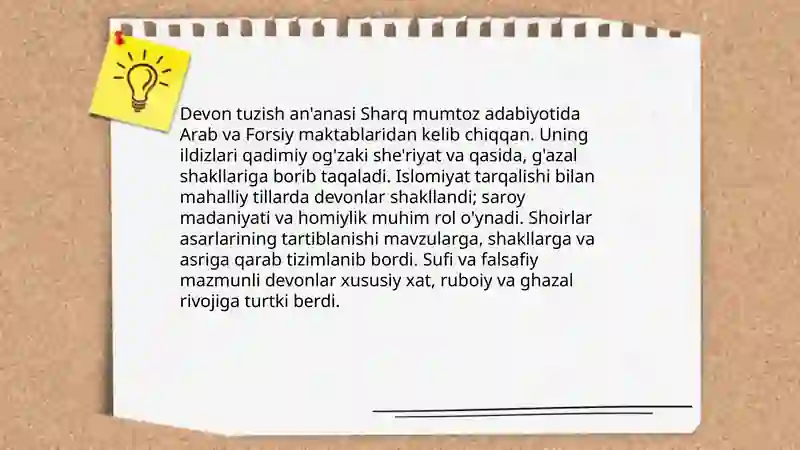 Devon tuzish an'anasi Sharq mumtoz adabiyotida
Arab va Forsiy maktablaridan kelib chiqqan. Uning
ildizlari qadimiy og'zaki she'riyat va qasida, g'azal
shakllariga borib taqaladi. Islomiyat tarqalishi bilan
mahalliy tillarda devonlar shakllandi; saroy
madaniyati va homiylik muhim rol o'ynadi. Shoirlar
asarlarining tartiblanishi mavzularga, shakllarga va
asriga qarab tizimlanib bordi. Sufi va falsafiy
mazmunli devonlar xususiy xat, ruboiy va ghazal
rivojiga turtki berdi.